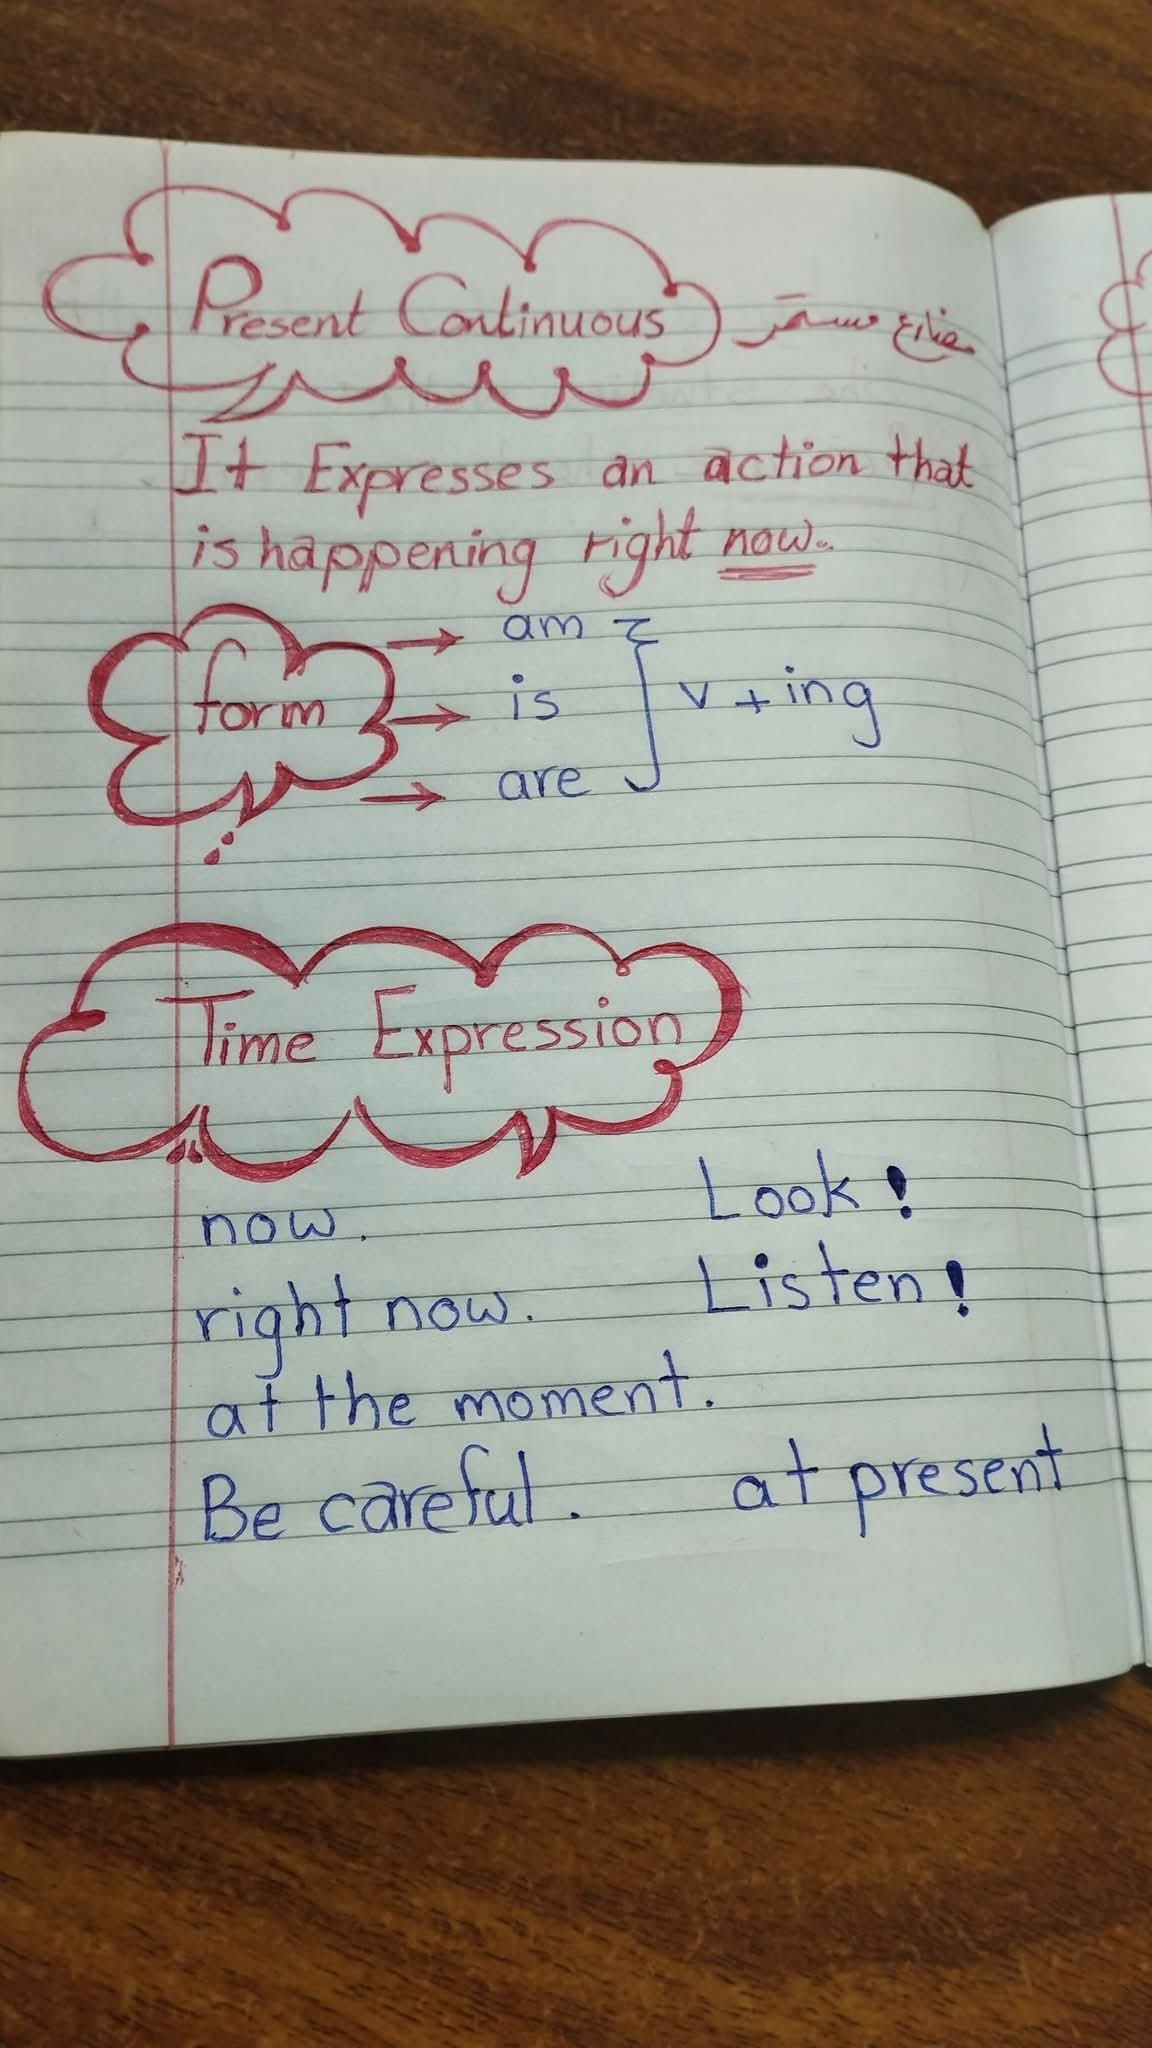 Present Continuous مضارع مستمر
It Expresses an action that
is happening right now.
form → am
→ is } v + ing
→ are
Time Expression
now. Look!
right now. Listen!
at the moment.
Be careful. at present